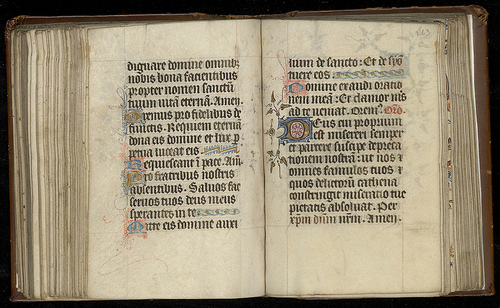 dignare domine omnibꝫ
nobis bona facientibus
propter nomen sanctū
tuum vitā eternā. Amen.
Oremus pro fidelibus de
functis. Requiem eternā
dona eis domine et lux ꝑ
petua luceat eis.
Requiescant ī pace. Am̄
Pro fratribus nostris
absentibus. Saluos fac
seruos tuos deus meus
sperantes in te.
Mitte eis domine auxi
lium de sancto: Et de syō
tuere eos.
Domine exaudi oratio
nem meā: Et clamor m̄s
ad te veniat. Orem̄. Orō.
Deus cui proprium
est misereri semper
et parcere suscipe depreca
tionem nostrā: ut nos ⁊
omnes famulos tuos ⁊
quos delictorū cathena
constringit miseratio tue
pietatis absoluat. Per
xp̄m dn̄m nr̄m. Amen.